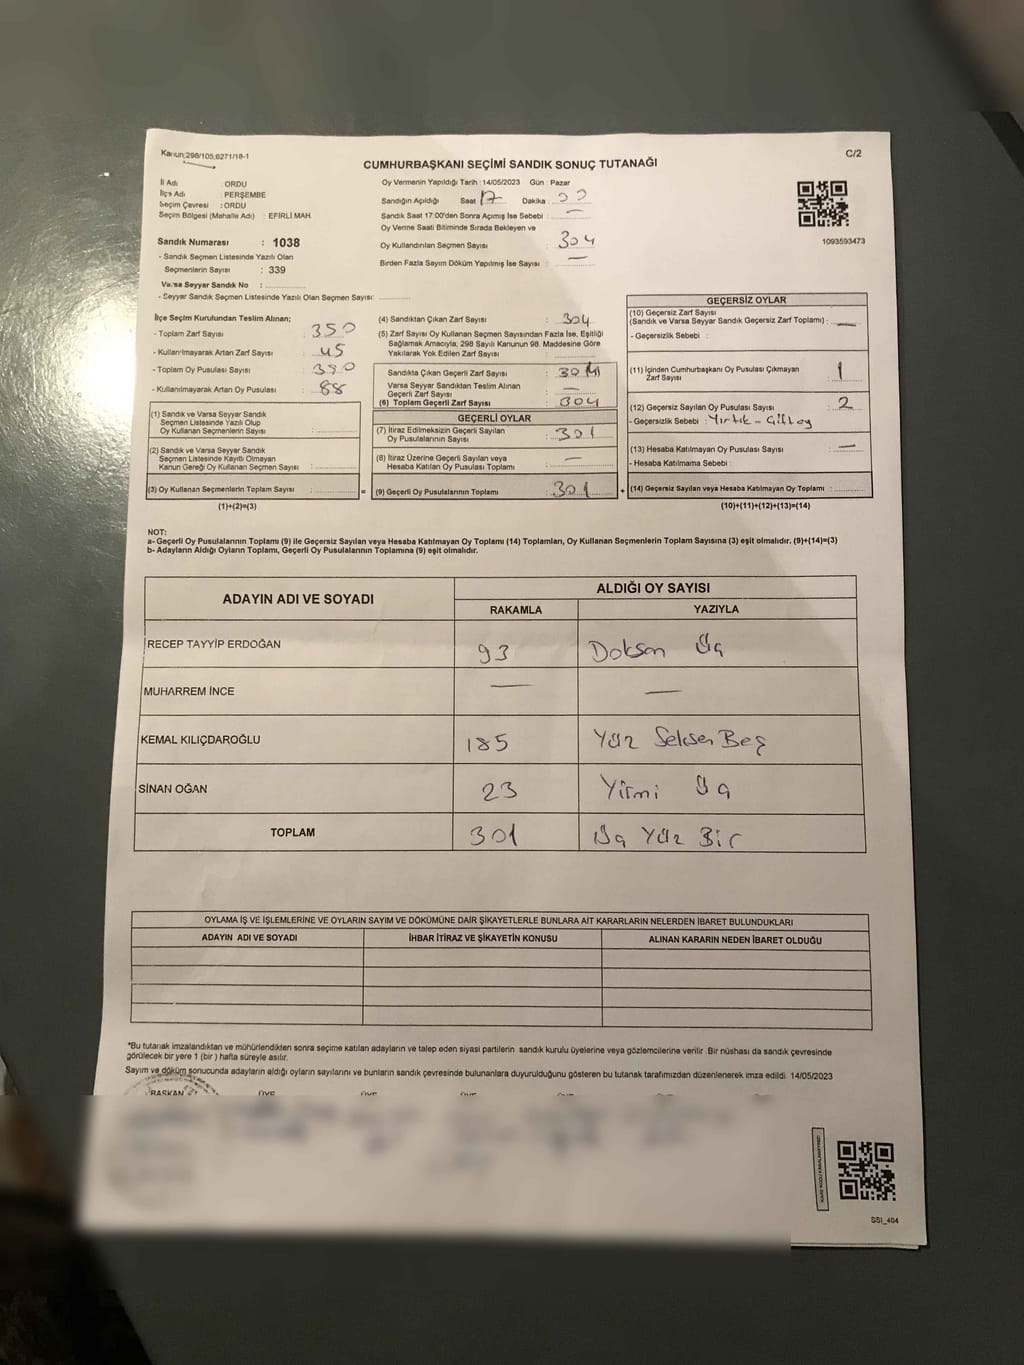 Kanun;298/105;6271/18-1
C/2
CUMHURBAŞKANI SEÇİMİ SANDIK SONUÇ TUTANAĞI
İl Adı : ORDU
İlçe Adı : PERŞEMBE
Seçim Çevresi : ORDU
Seçim Bölgesi (Mahalle Adı) : EFİRLİ MAH.
Sandık Numarası : 1038
- Sandık Seçmen Listesinde Yazılı Olan
Seçmenlerin Sayısı : 339
Varsa Seyyar Sandık No :
- Seyyar Sandık Seçmen Listesinde Yazılı Olan Seçmen Sayısı:
Oy Vermenin Yapıldığı Tarih : 14/05/2023 Gün : Pazar
Sandığın Açıldığı Saat 17 Dakika :
Sandık Saat 17:00'den Sonra Açımış İse Sebebi : —
Oy Verme Saati Bitiminde Sırada Bekleyen ve
Oy Kullandırılan Seçmen Sayısı : 304
Birden Fazla Sayım Döküm Yapılmış İse Sayısı : —
1093593473
İlçe Seçim Kurulundan Teslim Alınan;
- Toplam Zarf Sayısı : 350
- Kullanılmayarak Artan Zarf Sayısı : 45
- Toplam Oy Pusulası Sayısı :
- Kullanılmayarak Artan Oy Pusulası : 88
(1) Sandık ve Varsa Seyyar Sandık
Seçmen Listesinde Yazılı Olup
Oy Kullanan Seçmenlerin Sayısı :
(2) Sandık ve Varsa Seyyar Sandık
Seçmen Listesinde Kayıtlı Olmayan
Kanun Gereği Oy Kullanan Seçmen Sayısı :
(3) Oy Kullanan Seçmenlerin Toplam Sayısı :
(1)+(2)=(3)
(4) Sandıktan Çıkan Zarf Sayısı : 304
(5) Zarf Sayısı Oy Kullanan Seçmen Sayısından Fazla İse, Eşitliği
Sağlamak Amacıyla, 298 Sayılı Kanunun 98. Maddesine Göre
Yakılarak Yok Edilen Zarf Sayısı :
Sandıkta Çıkan Geçerli Zarf Sayısı : 304
Varsa Seyyar Sandıktan Teslim Alınan
Geçerli Zarf Sayısı : —
(6) Toplam Geçerli Zarf Sayısı : 304
GEÇERLİ OYLAR
(7) İtiraz Edilmeksizin Geçerli Sayılan
Oy Pusulalarının Sayısı : 301
(8) İtiraz Üzerine Geçerli Sayılan veya
Hesaba Katılan Oy Pusulası Toplamı : —
= (9) Geçerli Oy Pusulalarının Toplamı : 301 +
GEÇERSİZ OYLAR
(10) Geçersiz Zarf Sayısı
(Sandık ve Varsa Seyyar Sandık Geçersiz Zarf Toplamı) : —
- Geçersizlik Sebebi :
(11) İçinden Cumhurbaşkanı Oy Pusulası Çıkmayan
Zarf Sayısı : 1
(12) Geçersiz Sayılan Oy Pusulası Sayısı : 2
- Geçersizlik Sebebi : Yırtık - Çift oy
(13) Hesaba Katılmayan Oy Pusulası Sayısı : —
- Hesaba Katılmama Sebebi :
(14) Geçersiz Sayılan veya Hesaba Katılmayan Oy Toplamı :
(10)+(11)+(12)+(13)=(14)
NOT:
a- Geçerli Oy Pusulalarının Toplamı (9) ile Geçersiz Sayılan veya Hesaba Katılmayan Oy Toplamı (14) Toplamları, Oy Kullanan Seçmenlerin Toplam Sayısına (3) eşit olmalıdır. (9)+(14)=(3)
b- Adayların Aldığı Oyların Toplamı, Geçerli Oy Pusulalarının Toplamına (9) eşit olmalıdır.
ADAYIN ADI VE SOYADI ALDIĞI OY SAYISI
RAKAMLA YAZIYLA
RECEP TAYYİP ERDOĞAN 93 Doksan Üç
MUHARREM İNCE — —
KEMAL KILIÇDAROĞLU 185 Yüz Seksen Beş
SİNAN OĞAN 23 Yirmi Üç
TOPLAM 301 Üç Yüz Bir
OYLAMA İŞ VE İŞLEMLERİNE VE OYLARIN SAYIM VE DÖKÜMÜNE DAİR ŞİKAYETLERLE BUNLARA AİT KARARLARIN NELERDEN İBARET BULUNDUKLARI
ADAYIN ADI VE SOYADI İHBAR İTİRAZ VE ŞİKAYETİN KONUSU ALINAN KARARIN NEDEN İBARET OLDUĞU
*Bu tutanak imzalandıktan ve mühürlendikten sonra seçime katılan adayların ve talep eden siyasi partilerin sandık kurulu üyelerine veya gözlemcilerine verilir. Bir nüshası da sandık çevresinde
görülecek bir yere 1 (bir) hafta süreyle asılır.
Sayım ve döküm sonucunda adayların aldığı oyların sayılarını ve bunların sandık çevresinde bulunanlara duyurulduğunu gösteren bu tutanak tarafımızdan düzenlenerek imza edildi. 14/05/2023
BAŞKAN ÜYE ÜYE ÜYE ÜYE
SSI_404